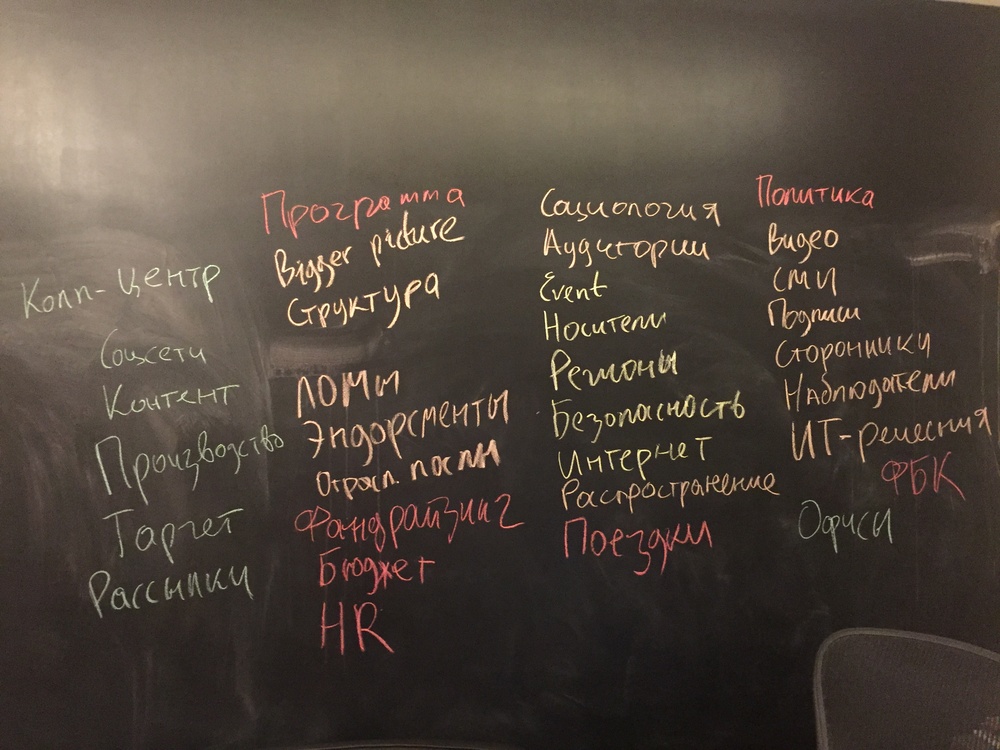 Колл-центр
Соцсети
Контент
Производство
Таргет
Рассылки
Программа
Bigger picture
Структура
ЛОМы
Эндорсменты
Отрасл. послы
Фандрайзинг
Бюджет
HR
Социология
Аудитории
Event
Носители
Регионы
Безопасность
Интернет
Распространение
Поездки
Политика
Видео
СМИ
Подписи
Сторонники
Наблюдатели
ИТ-решения
ФБК
Офисы